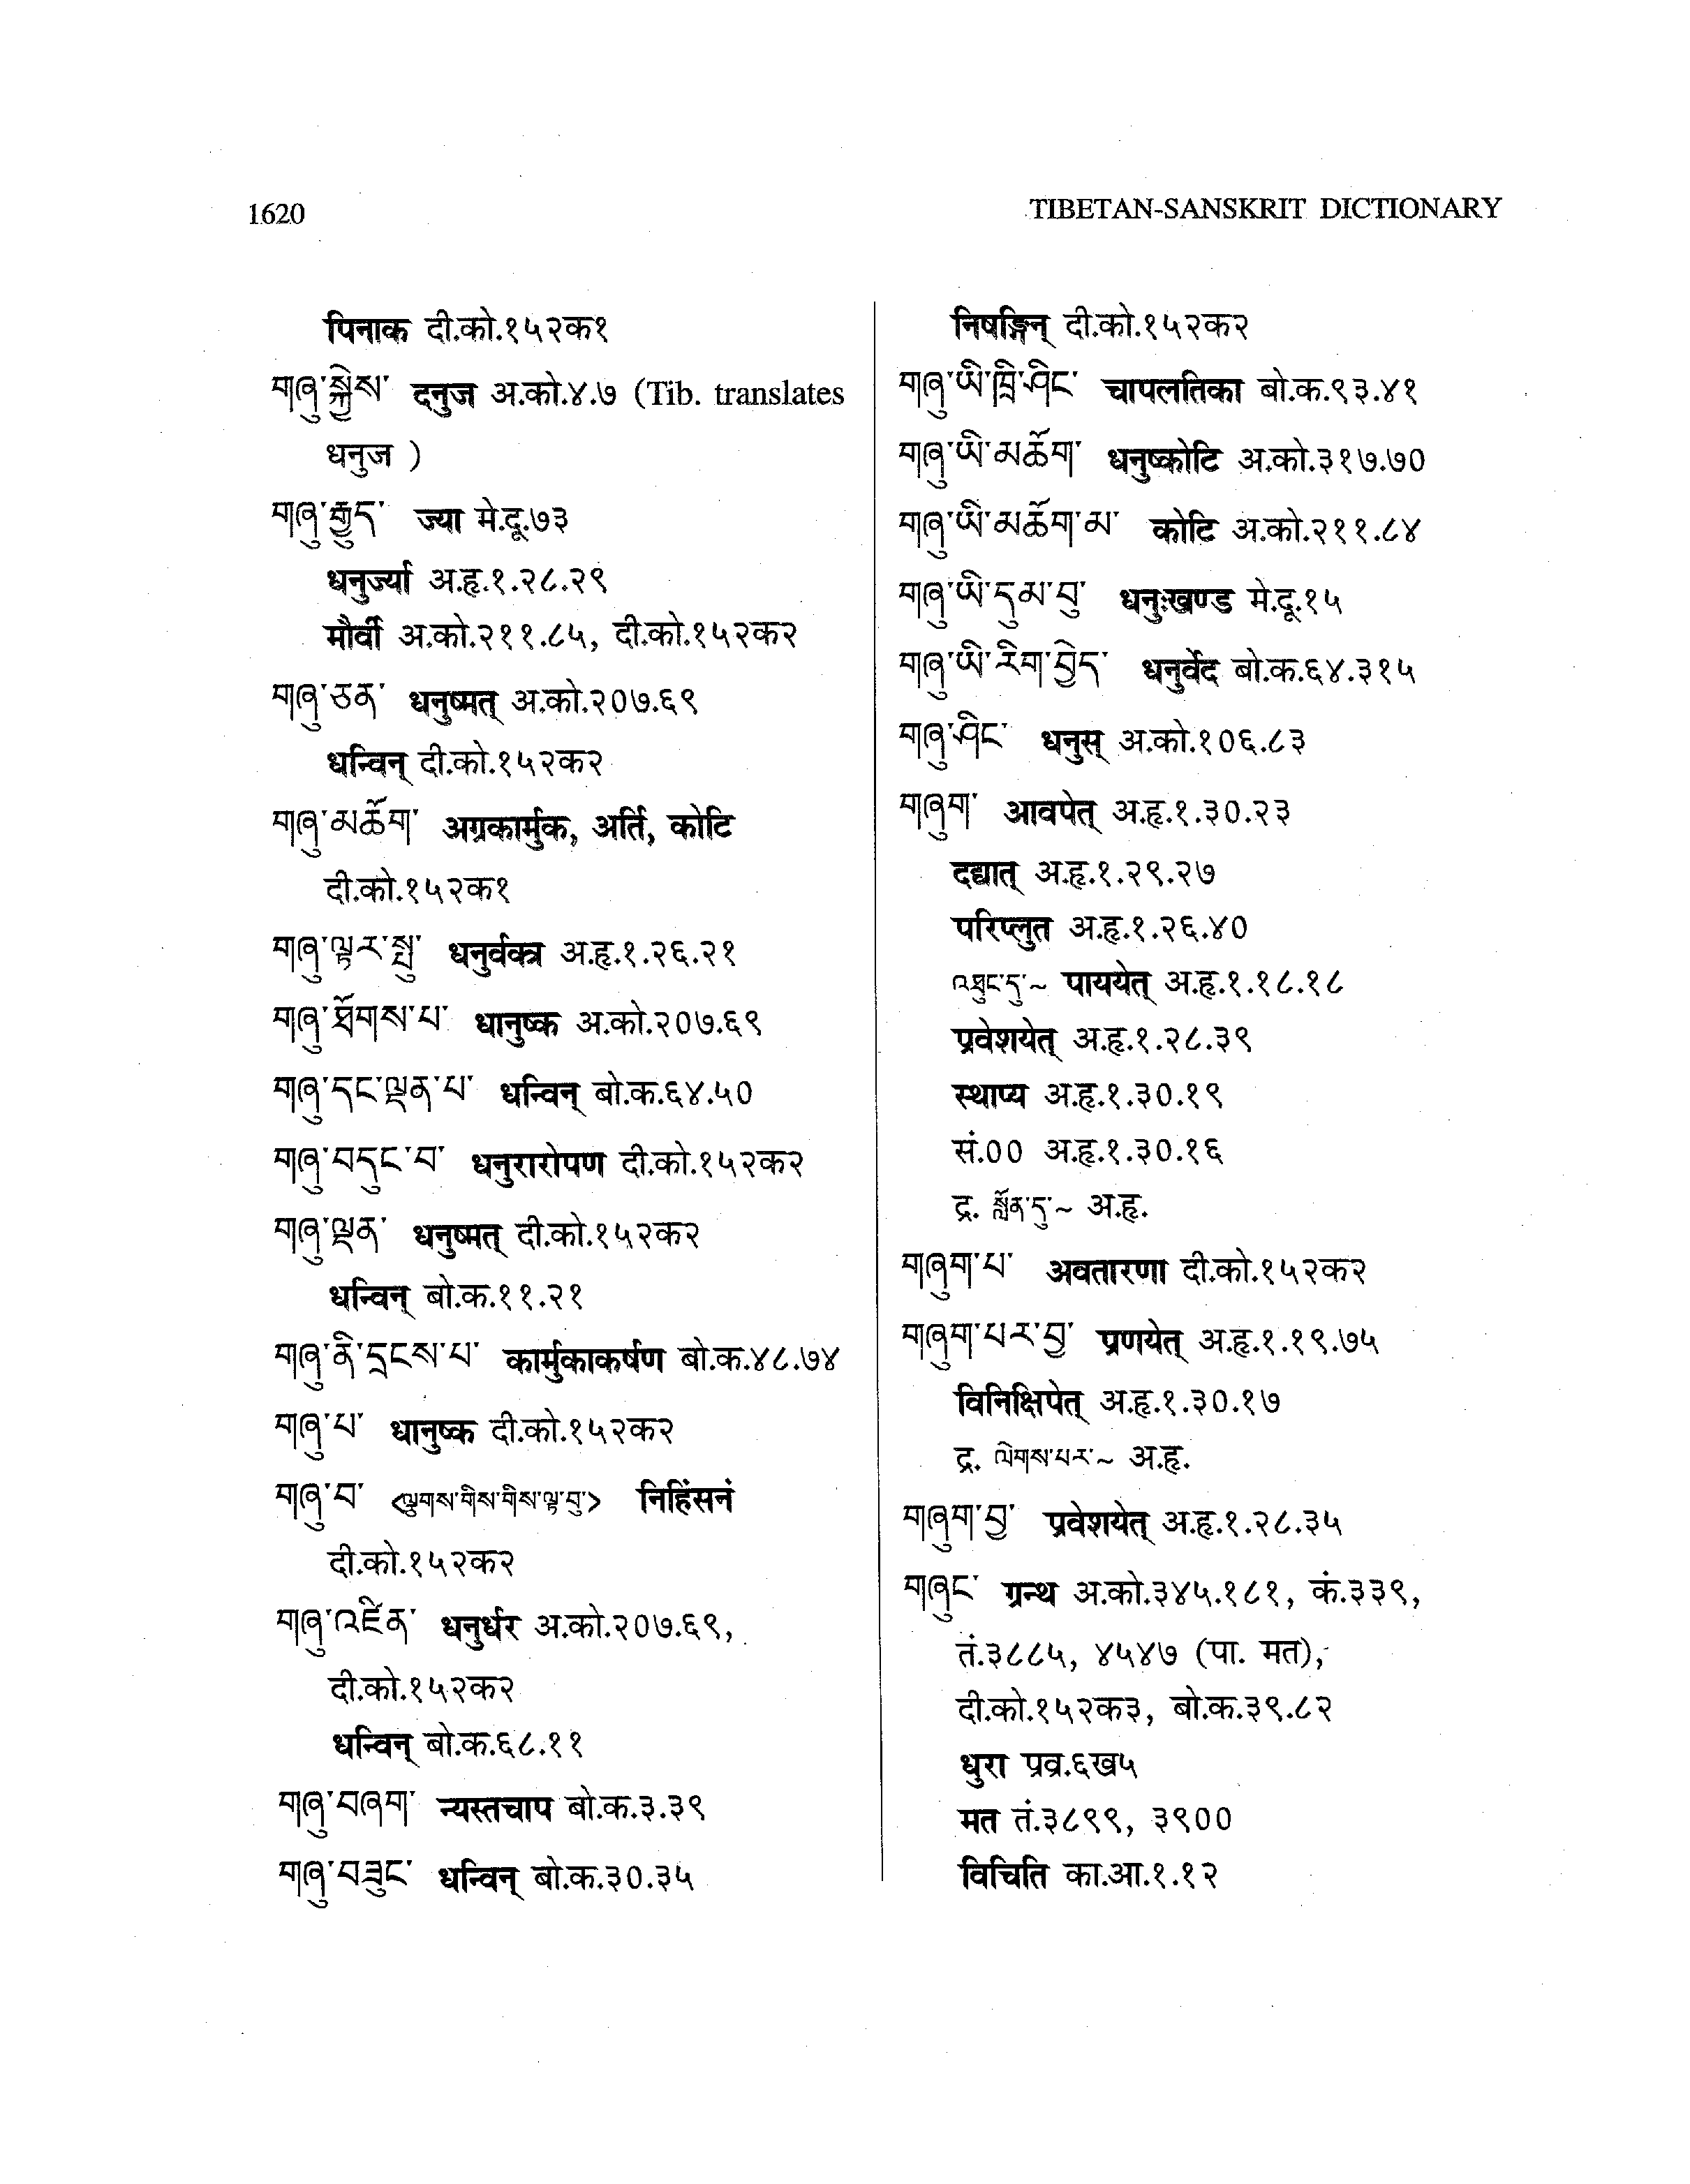 1620
TIBETAN-SANSKRIT DICTIONARY
पिनाक दी.को.१५२क१
གཞུ་སྐྱེས་ दनुज अ.को.४.७ (Tib. translates
धनुज )
གཞུ་རྒྱུད་ ज्या मे.दू.७३
धनुर्ज्या अ.हृ.१.२८.२९
मौर्वी अ.को.२११.८५, दी.को.१५२क२
གཞུ་ཅན་ धनुष्मत् अ.को.२०७.६९
धन्विन् दी.को.१५२क२
གཞུ་མཆོག་ अग्रकार्मुक, अर्ति, कोटि
दी.को.१५२क१
གཞུ་ལྟར་སྤུ་ धनुर्वक्त्र अ.हृ.१.२६.२१
གཞུ་ཐོགས་པ་ धानुष्क अ.को.२०७.६९
གཞུ་དང་ལྡན་པ་ धन्विन् बो.क.६४.५०
གཞུ་བདུང་བ་ धनुरारोपण दी.को.१५२क२
གཞུ་ལྡན་ धनुष्मत् दी.को.१५२क२
धन्विन् बो.क.११.२१
གཞུ་ནི་དྲངས་པ་ कार्मुकाकर्षण बो.क.४८.७४
གཞུ་པ་ धानुष्क दी.को.१५२क२
གཞུ་བ་ <ལྕུགས་གིས་གིས་ལྟ་བུ་> निहिंसनं
दी.को.१५२क२
གཞུ་འཛིན་ धनुर्धर अ.को.२०७.६९,
दी.को.१५२क२
धन्विन् बो.क.६८.११
གཞུ་བཞག་ न्यस्तचाप बो.क.३.३९
གཞུ་བཟུང་ धन्विन् बो.क.३०.३५
निषङ्गिन् दी.को.१५२क२
གཞུ་ཡི་ཁྲི་ཤིང་ चापलतिका बो.क.९३.४१
གཞུ་ཡི་མཆོག་ धनुष्कोटि अ.को.३१७.७०
གཞུ་ཡི་མཆོག་མ་ कोटि अ.को.२११.८४
གཞུ་ཡི་དུམ་བུ་ धनुःखण्ड मे.दू.१५
གཞུ་ཡི་རིག་བྱེད་ धनुर्वेद बो.क.६४.३१५
གཞུ་ཤིང་ धनुस् अ.को.१०६.८३
གཞུག་ आवपेत् अ.हृ.१.३०.२३
दद्यात् अ.हृ.१.२९.२७
परिप्लुत अ.हृ.१.२६.४०
འཐུང་དུ་~ पाययेत् अ.हृ.१.१८.१८
प्रवेशयेत् अ.हृ.१.२८.३९
स्थाप्य अ.हृ.१.३०.१९
सं.०० अ.हृ.१.३०.१६
द्र. སློན་དུ་~ अ.हृ.
གཞུག་པ་ अवतारणा दी.को.१५२क२
གཞུག་པར་བྱ་ प्रणयेत् अ.हृ.१.१९.७५
विनिक्षिपेत् अ.हृ.१.३०.१७
द्र. ལེགས་པར་~ अ.हृ.
གཞུག་བྱ་ प्रवेशयेत् अ.हृ.१.२८.३५
གཞུང་ ग्रन्थ अ.को.३४५.१८१, कं.३३९,
तं.३८८५, ४५४७ (पा. मत),
दी.को.१५२क३, बो.क.३९.८२
धुरा प्रव्र.६ख५
मत तं.३८९९, ३९००
विचिति का.आ.१.१२